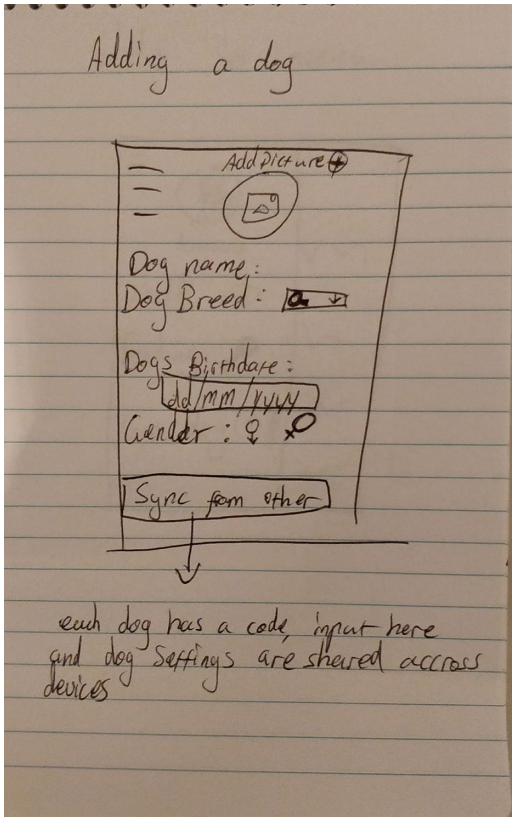 Adding a dog
Add Picture
Dog name:
Dog Breed:
Dogs Birthdate:
dd/mm/yyyy
Gender:
Sync from other
each dog has a code, input here
and dog Settings are shared accross
devices